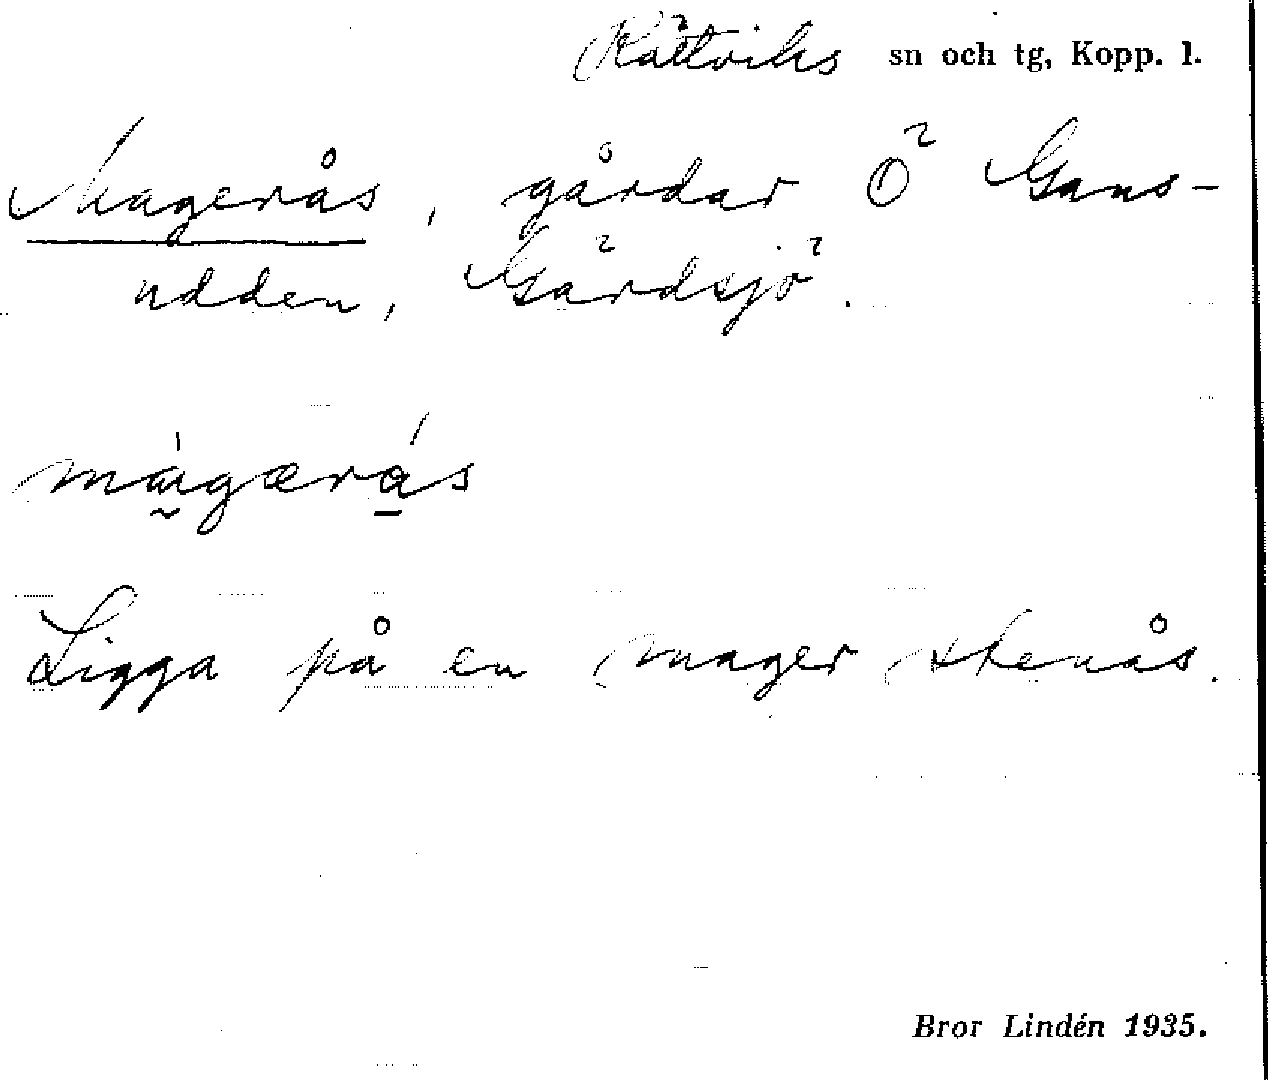 Rättviks sn och tg, Kopp. l.
Magerås, gårdar Ö Gans-
udden, Gärdsjö.
mágærás
Ligga på en mager stenås.
Bror Lindén 1935.